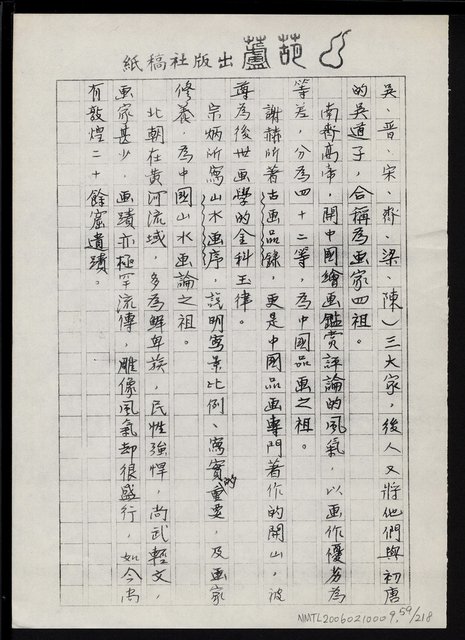 紙稿社版出蘆葫
吳、晋、宋、齊、梁、陳）三大家，後人又將他們與初唐
的吳道子，合稱為画家四祖。
南齊高帝，開中國繪画鑑賞評論的風氣，以画作優劣為
等差，分為四十二等，為中國品画之祖。
謝赫所著古画品錄，更是中國品画專門著作的開山，被
尊為後世画學的金科玉律。
宗炳所寫山水画序，說明寫景比例、寫實的重要，及画家
修養，為中國山水画論之祖。
北朝在黃河流域，多為鮮卑族，民性強悍，尚武輕文，
画家甚少，画蹟亦極罕流傳，雕像風氣却很盛行，如今尚
有敦煌二十餘窟遺蹟。
NMTL20060210009, 59/218